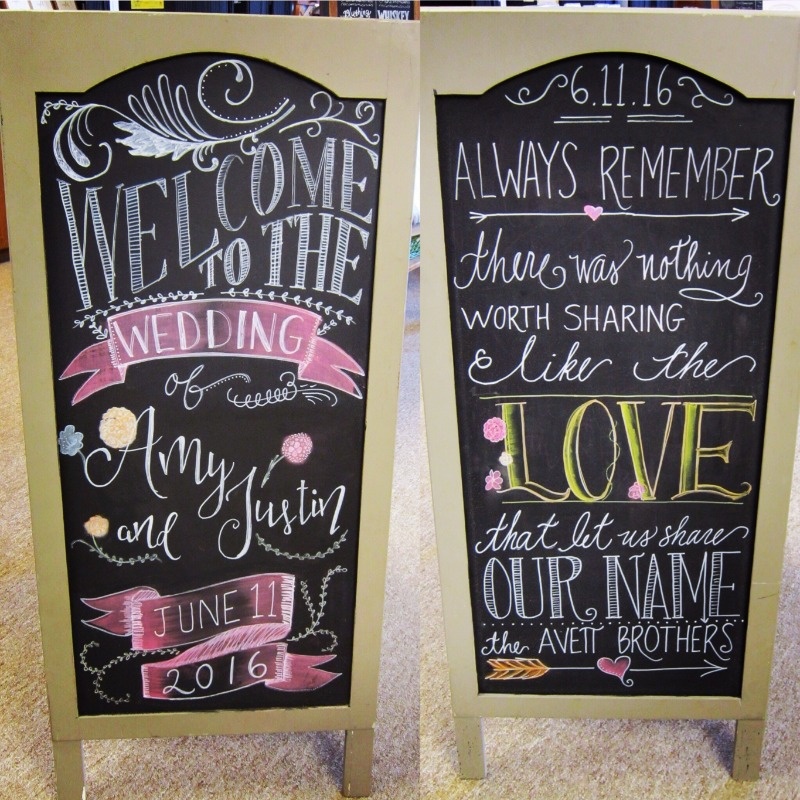 WELCOME
TO THE
WEDDING
of
Amy
and Justin
JUNE 11
2016
6.11.16
ALWAYS REMEMBER
there was nothing
WORTH SHARING
like the
LOVE
that let us share
OUR NAME
the AVETT BROTHERS
WHISKEY